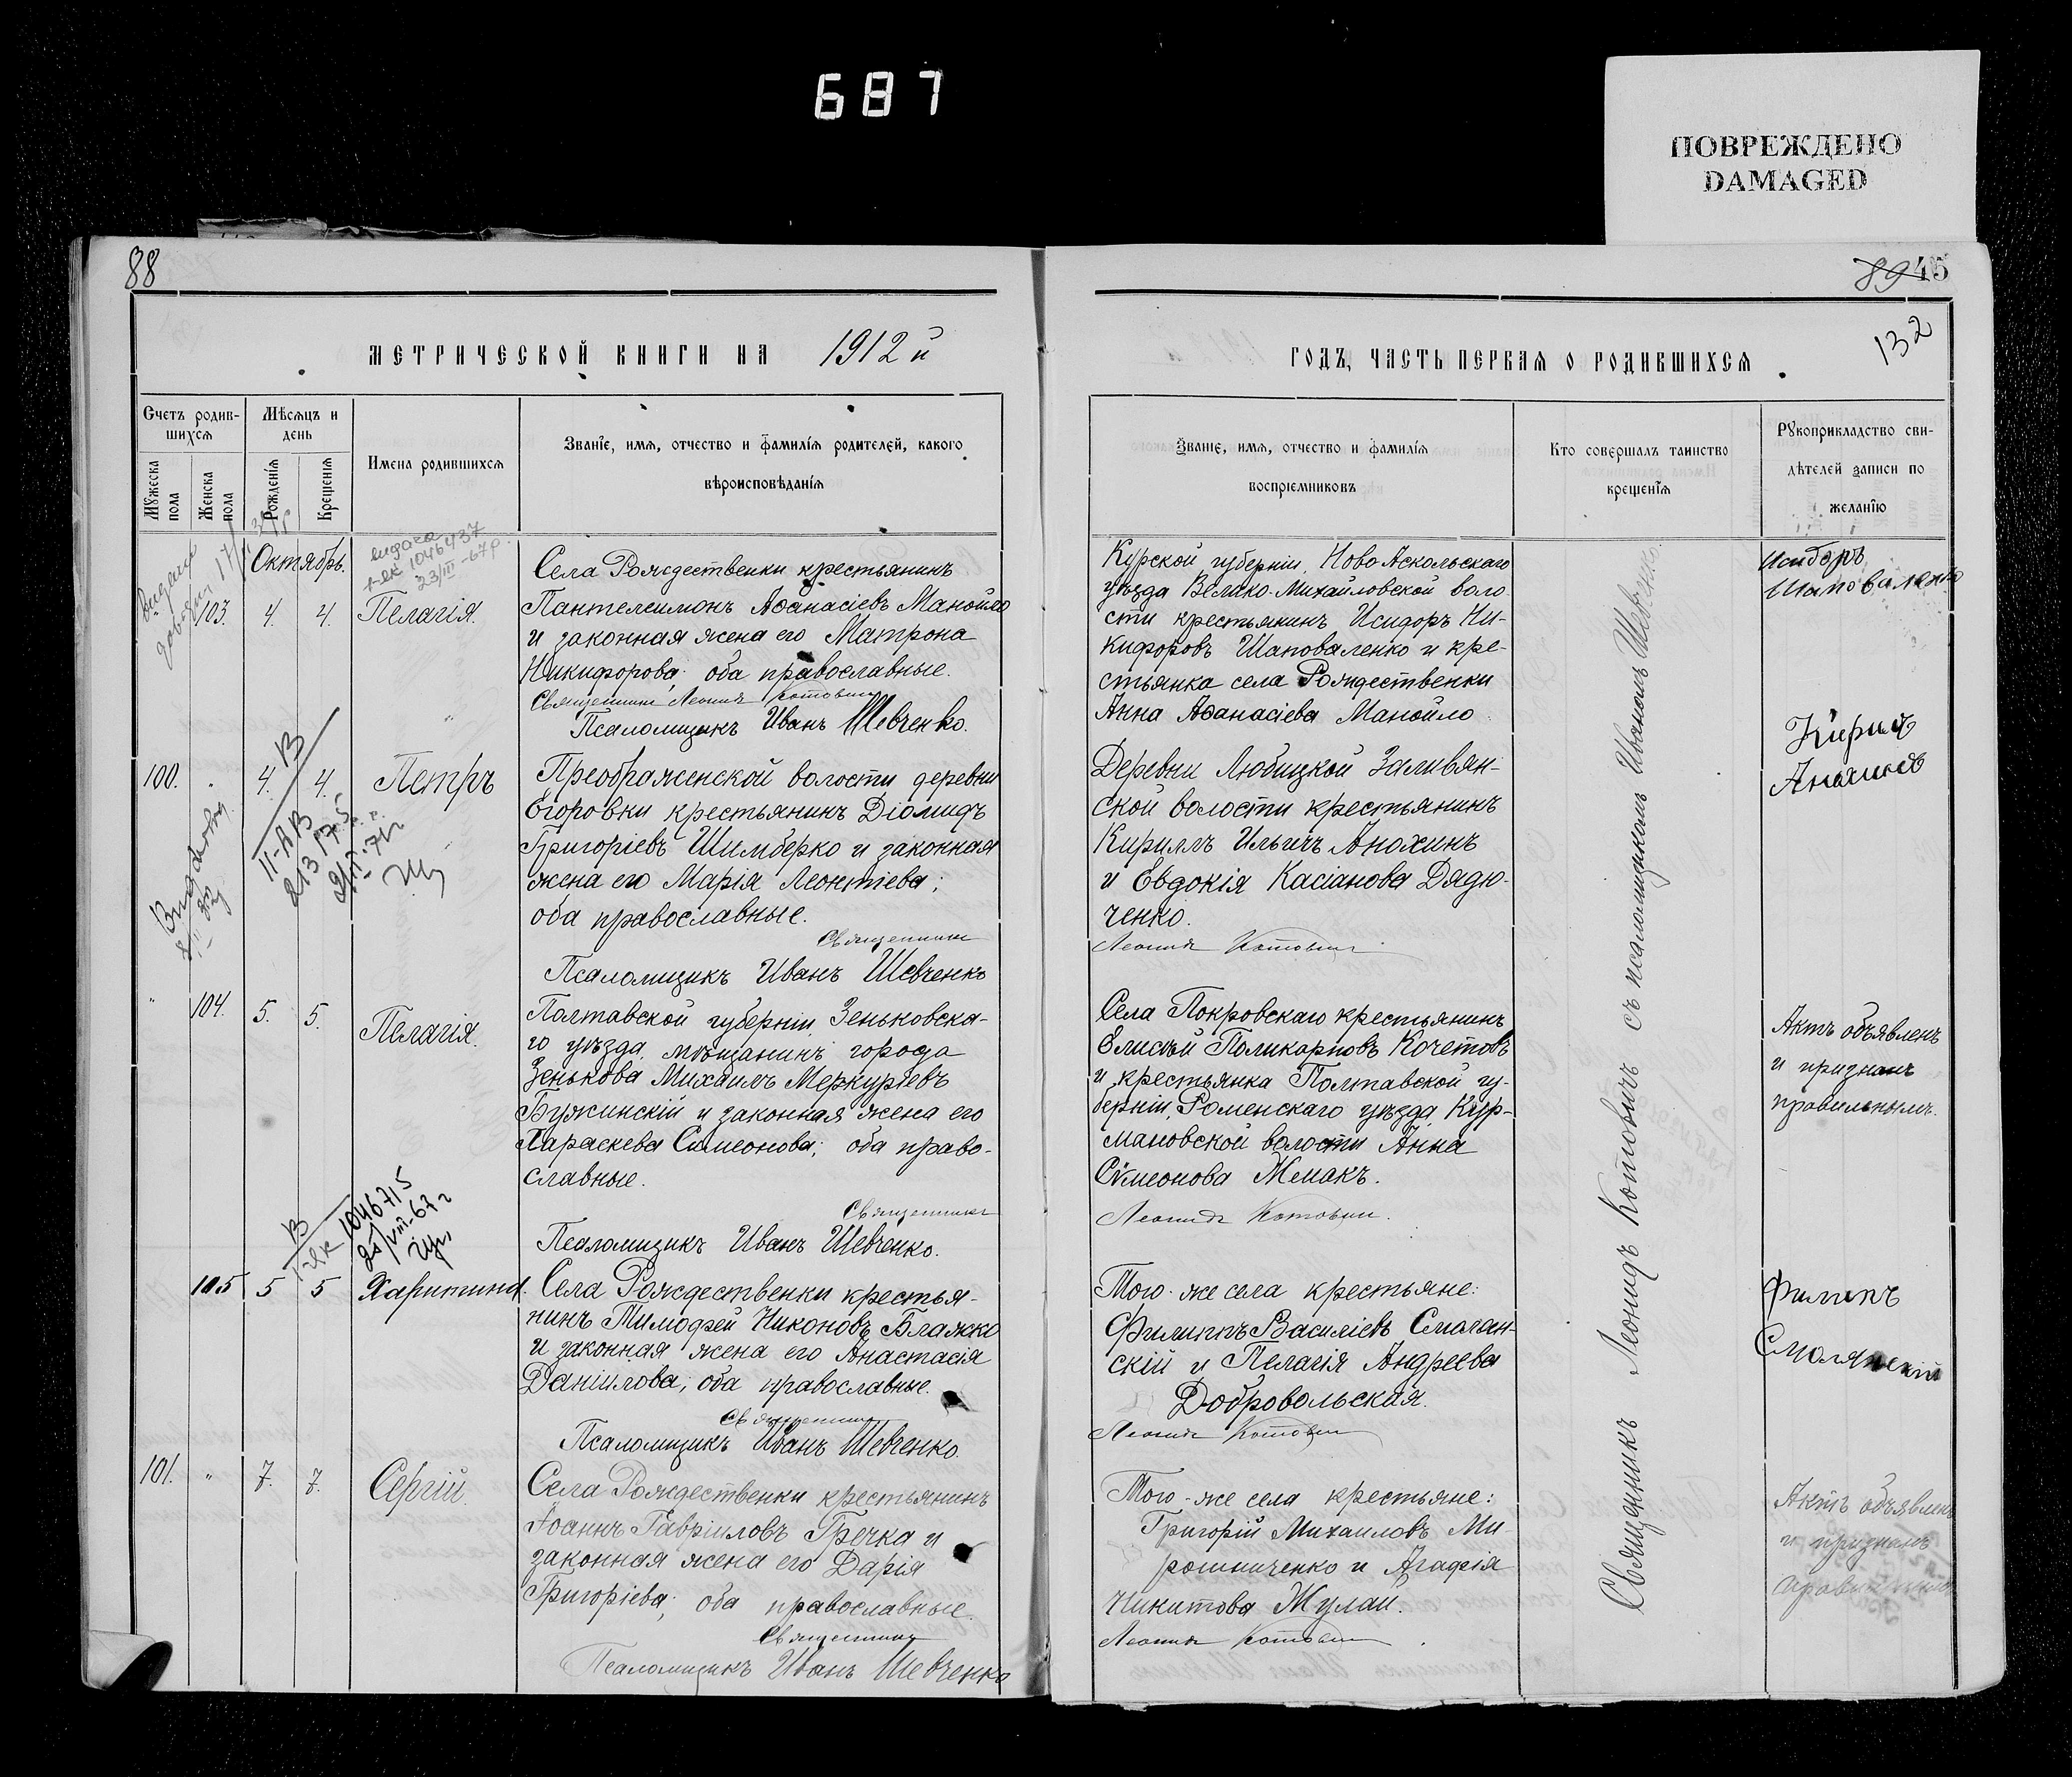 687
ПОВРЕЖДЕНО
DAMAGED
88
МЕТРИЧЕСКОЙ КНИГИ НА 1912 й
Счетъ родив-
шихся
Мѣсяцъ и
день
Мужеска
пола
Женска
пола
Рожденія
Крещенія
Имена родившихся
Званіе, имя, отчество и фамилія родителей, какого
вѣроисповѣданія
Октябрь.
видана
1046437
23/III-67р.
103. 4. 4. Пелагія.
Села Рождественки крестьянинъ
Пантелеимонъ Аѳанасіевъ Манойло
и законная жена его Матрона
Никифорова; оба православные.
Священникъ Леонидъ Котовичъ
Псаломщикъ Иванъ Шевченко.
В
II-АВ
100. " 4. 4. Петръ
Преображенской волости деревни
Егоровки крестьянинъ Діомидъ
Григоріевъ Шимберко и законная
жена его Марія Леонтіева;
оба православные.
Священникъ
Псаломщикъ Иванъ Шевченко
" 104. 5. 5. Пелагія.
Полтавской губерніи Зеньковска-
го уѣзда, мѣщанинъ города
Зенькова Михаилъ Меркуріевъ
Бужинскій и законная жена его
Параскева Симеонова; оба право-
славные.
Священникъ
Псаломщикъ Иванъ Шевченко.
В
1046715
25/VIII-67г
105 5 5 Харитина.
Села Рождественки крестья-
нинъ Тимофей Никоновъ Блажко
и законная жена его Анастасія
Даніилова; оба православные.
Священникъ
Псаломщикъ Иванъ Шевченко.
101. " 7. 7. Сергій.
Села Рождественки крестьянинъ
Іоаннъ Гавріиловъ Гречка и
законная жена его Дарія
Григоріева; оба православные.
Священникъ
Псаломщикъ Иванъ Шевченко
89 45
132
ГОДЪ, ЧАСТЬ ПЕРВАЯ О РОДИВШИХСЯ
Званіе, имя, отчество и фамилія
воспріемниковъ
Кто совершалъ таинство
крещенія
Рукоприкладство сви-
дѣтелей записи по
желанію
Курской губерніи, Ново-Аскольскаго
уѣзда Велико-Михайловской воло
сти крестьянинъ Исидоръ Ни-
кифоровъ Шаповаленко и кре-
стьянка села Рождественки
Анна Аѳанасіева Манойло
Исидоръ
Шаповаленко
Деревни Любицкой Заливян-
ской волости крестьянинъ
Кириллъ Ильичъ Анохинъ
и Евдокія Касіанова Дядю-
ченко.
Леонидъ Котовичъ
Кирилъ
Анохинъ
Села Покровскаго крестьянинъ
Елисѣй Поликарповъ Кочетовъ
и крестьянка Полтавской гу-
берніи, Роменскаго уѣзда, Кур-
мановской волости Анна
Симеонова Жемакъ.
Леонидъ Котовичъ.
Актъ объявленъ
и признанъ
правильнымъ.
Того-же села крестьяне:
Филиппъ Василіевъ Смолян-
скій и Пелагія Андреева
Добровольская.
Леонидъ Котовичъ
Филипъ
Смолянскій
Того-же села крестьяне:
Григорій Михаиловъ Ми-
рошниченко и Агафія
Никитова Жулай.
Леонидъ Котовичъ
Актъ объявленъ
и признанъ
Священникъ Леонидъ Котовичъ съ псаломщикомъ Иваномъ Шевченко.